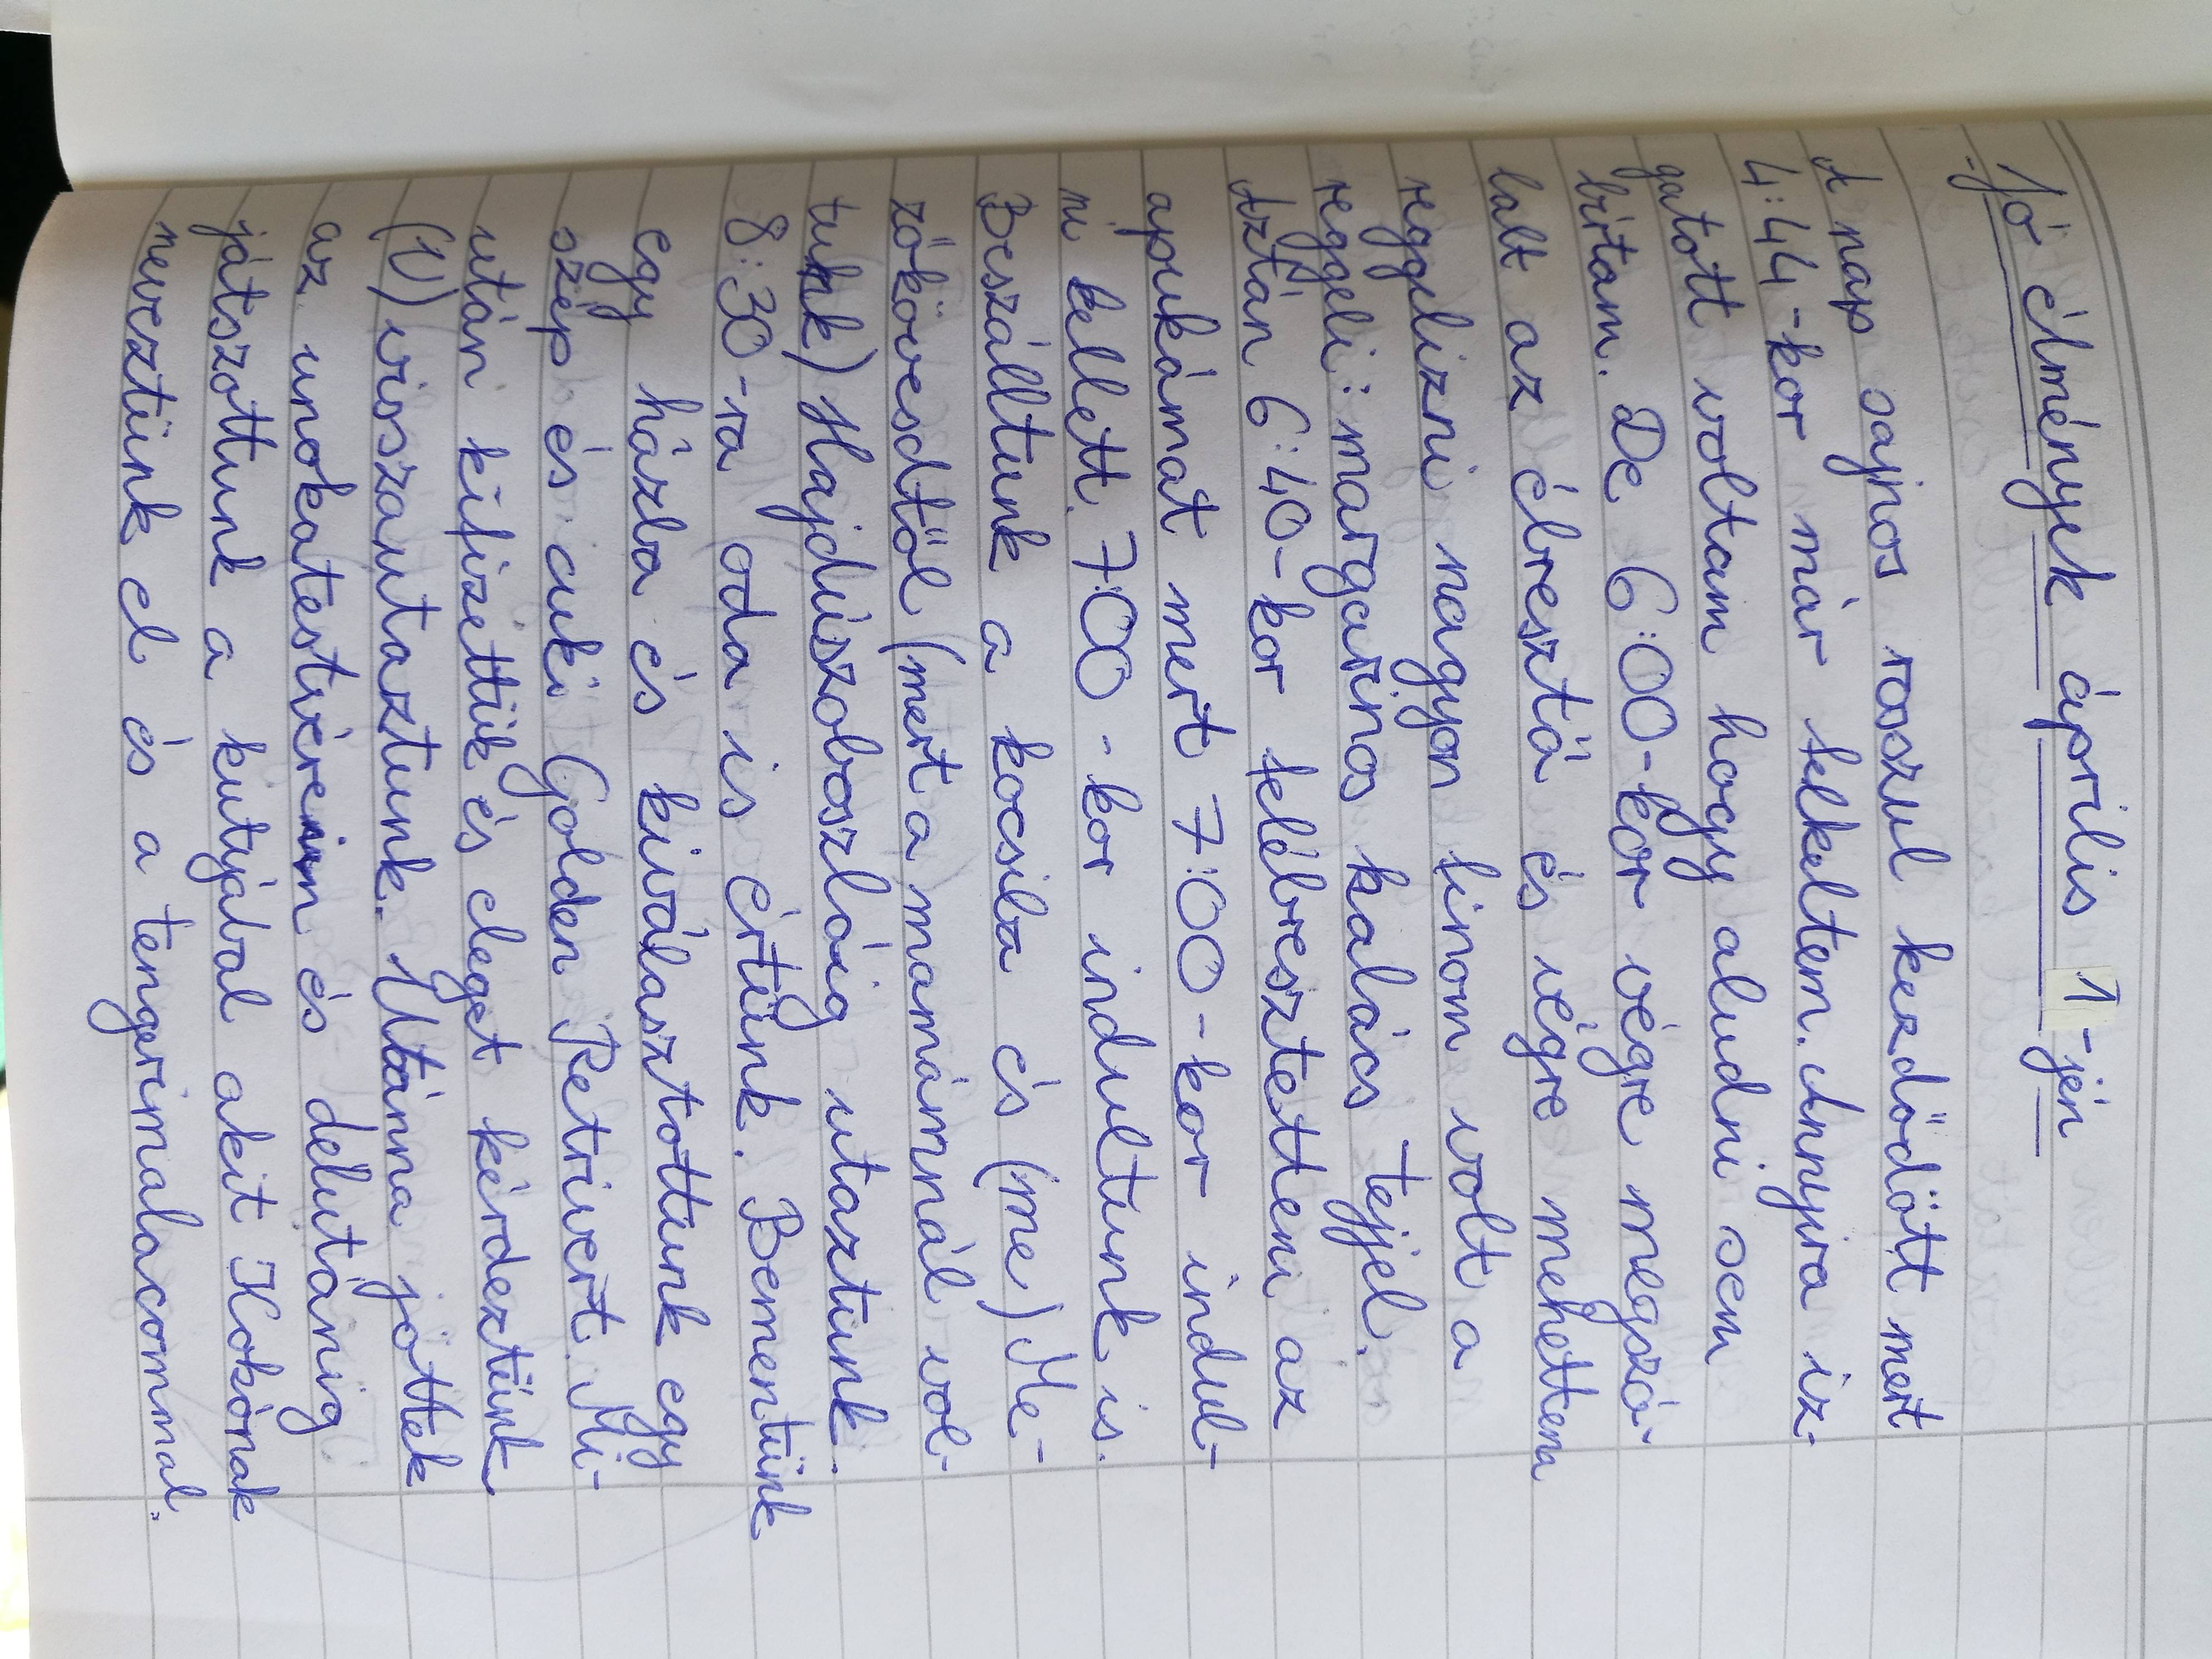 Jó élmények április 1-jén
A nap sajnos rosszul kezdődött mert
4:44-kor már felkeltem. Annyira iz-
gatott voltam hogy aludni sem
bírtam. De 6:00-kor végre megszó-
lalt az ébresztő és végre mehettem
reggelizni nagyon finom volt a
reggeli: margarinos kalács tejjel.
Aztán 6:40-kor felébresztettem az
apukámat mert 7:00-kor indul-
ni kellett. 7:00-kor indultunk is.
Beszálltunk a kocsiba és (me) Me-
zőkövesdtől (mert a mamámnál vol-
tunk) Hajdúszoboszlóig utaztunk.
8:30-ra oda is értünk. Bementünk
egy házba és kiválasztottunk egy
szép és cuki Golden Retrivert. Mi-
után kifizettük és eleget kérdeztünk
(V) visszautaztunk. Utánna jöttek
az unokatestvéreim és délutánig
játszottunk a kutyjával akit Kokónak
neveztünk el és a tengerimalacommal.